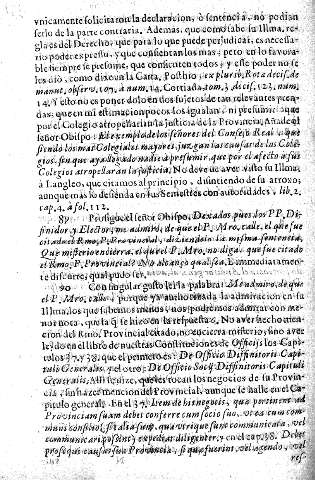 vnicamente solicitaron la declaracion, ò sentencia, no podian
serlo de la parte contraria. Ademas, que como sabe su Illma, re-
glaes del Derecho, que para lo que puede perjudicar, es necessa-
rio poder expresso, y que consientan los mas: pero en lo favora-
ble siempre se presume, que consienten todos: y este poder no se
les diò, como dixo en la Carta, Posthio, ex plurib. Rotæ decis. de
manut. observ. 105. à num. 14. Cortiada tom. 3. decis. 123. num.
14. Y esto no es poner dolo en dos sujetos de tan relevantes pren-
das, que en mi estimacion pocos los igualan; ni presumir, que
por el Colegio atropellarian la justicia de la Provincia. Añade el
señor Obispo: El exemplo de los señores del Consejo Real, que
siendo los mas Colegiales mayores, juzgan las causas de los Cole-
gios, sin que aya dado nadie à presumir, que por el afecto a sus
Colegios atropellaràn la justicia. No deve de aver visto su Illma,
à Langleo, que citamos al principio, disintiendo de su arroxo,
aunque mas lo defienda en sus Semestres con autoridades, lib. 2.
cap. 4. à fol. 112.
89 Prosigue el señor Obispo, Dexados pues los PP. Di-
finidor, y Elector, me admiro, de que el P. Mro, calle, el que fue
citado el Rmo. P. Provincial, diziendolo la misma sentencia.
Que misterio encierra, el que el P. Mro, no diga, que fue citado
el Rmo. P. Provincial? No alcanço qual sea. E immediatamen-
te discurre, qual pudo ser.
90 Con singular gusto leì la palabra: Me admiro, de que
el P. Mro, calle, porque ya authorizada la admiracion en su
Illma, los que sabemos menos, nos podremos admirar con me-
nor nota, que la que hizo en la respuesta. No aver hecho men-
cion del Rmo. Provincial citado, no encierra misterio, sino aver
leìdo en el libro de nuestras Constituciones de Officijs los Capi-
tulos 37. y 38. que el primero es: De Officio Diffinitoris Capi-
tuli Generalis, y el otro: De Officio Socij Diffinitoris Capituli
Generalis. Alli se dize, que les tocan los negocios de su Provin-
cia, sin hazer mencion del Provincial, aunque se halle en el Ca-
pitulo general. En el 37. Item de his negocijs, que pertinent ad
Provinciam suam debet conferre cum socio suo, vt ea cum com-
muni consilio, &
communicari possent, expediat diligenter, y en el cap. 38. Debet
prosequi causas suæ Provinciæ, si quæ fuerint, vel agendo, vel
res-